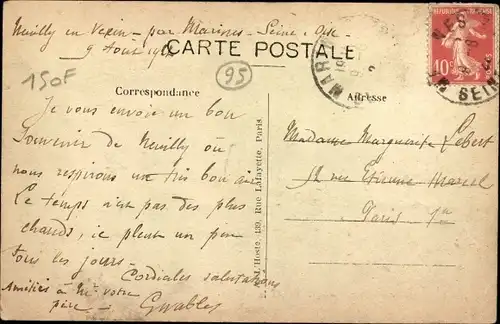 Neuilly en Vexin - par Marines - Seine & Oise
9 Août
CARTE POSTALE
150F
95
Correspondance
Adresse
MARINES
SEINE
10c
Je vous envoie un bon
Souvenir de Neuilly où
nous respirons un très bon air
Le temps n'est pas des plus
chauds, il pleut un peu
tous les jours.
Cordiales salutations
Amitiés à Mr votre
père -
Madame Marguerite Lebert
12 rue Etienne Marcel
Paris 1er
L'Hoste, 139, Rue Lafayette, Paris